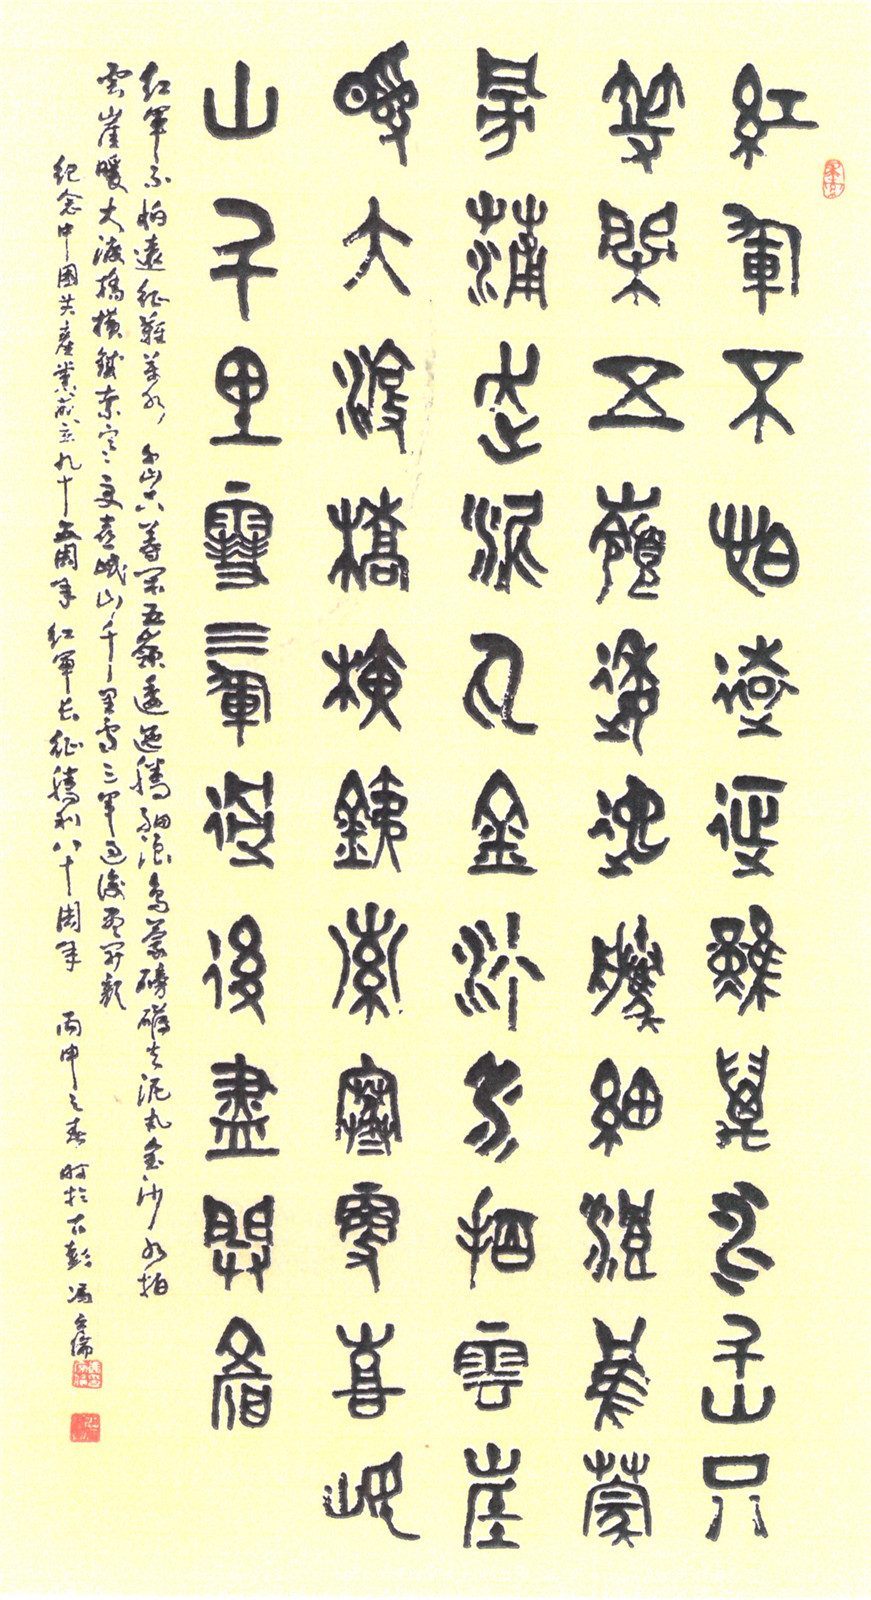 紅軍不怕遠征難萬水千山只
等閑五嶺逶迤騰細浪烏蒙
旁薄走泥丸金沙水拍雲崖
暖大渡橋橫鐵索寒更喜岷
山千里雪三軍過後盡開顏
紅軍不怕遠征難萬水千山只等閑五嶺逶迤騰細浪烏蒙磅礴走泥丸金沙水拍
雲崖暖大渡橋橫鐵索寒更喜岷山千里雪三軍過後盡開顏
紀念中國共產黨成立九十五周年 紅軍長征勝利八十周年 丙申之春 時於古彭 馮